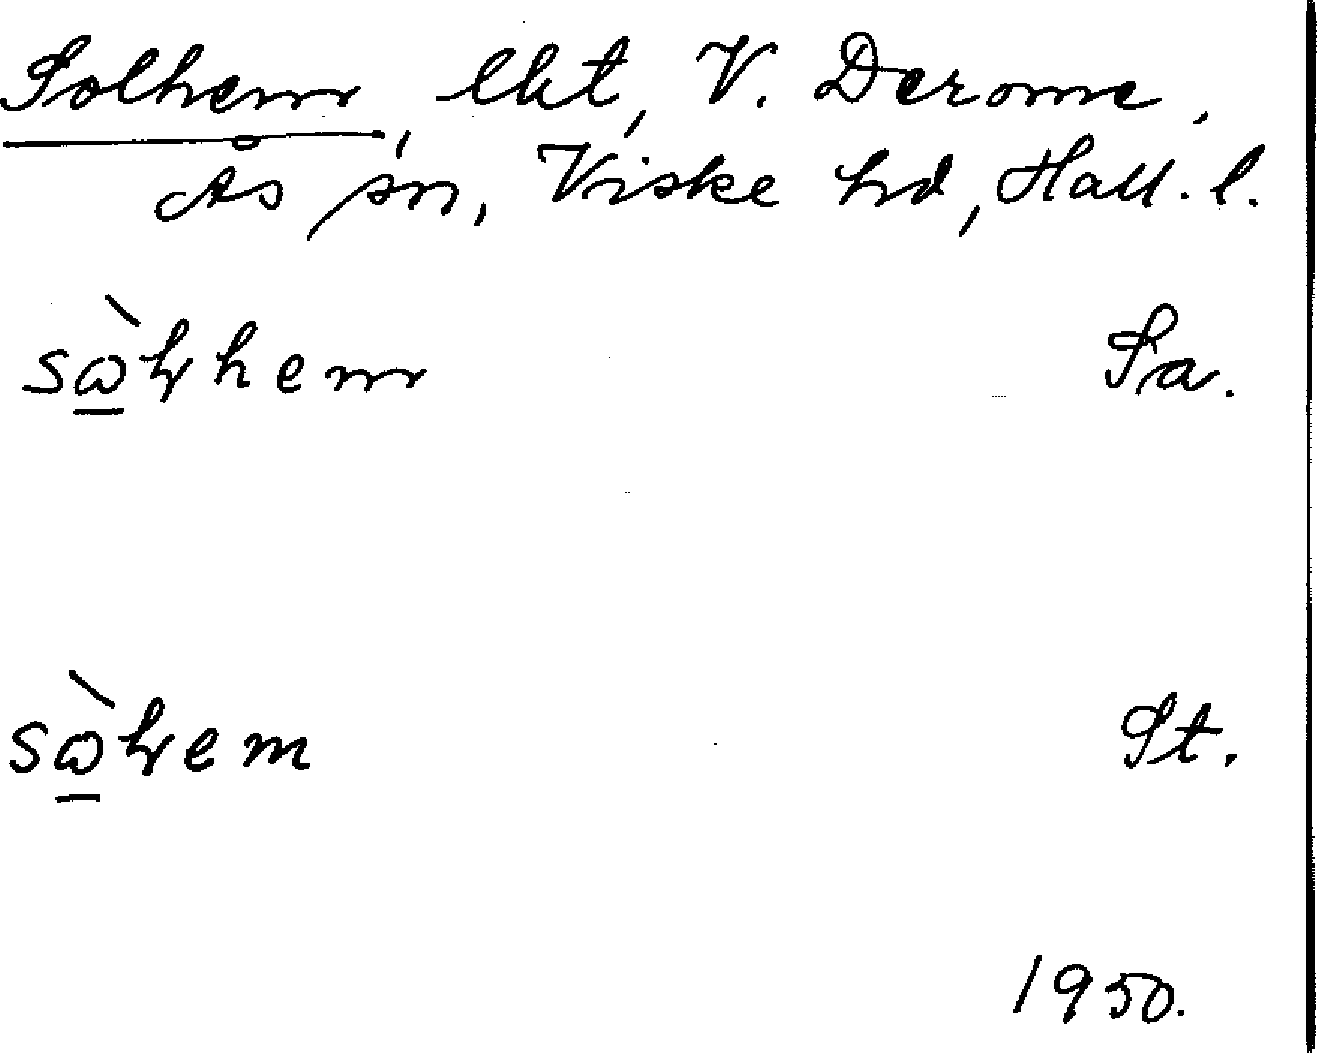 Solhem, lht, V. Derome,
Ås sn, Viske hd, Hall. l.
sὼ̲ɫhem Sa.
sὼ̲ɫem St.
1950.